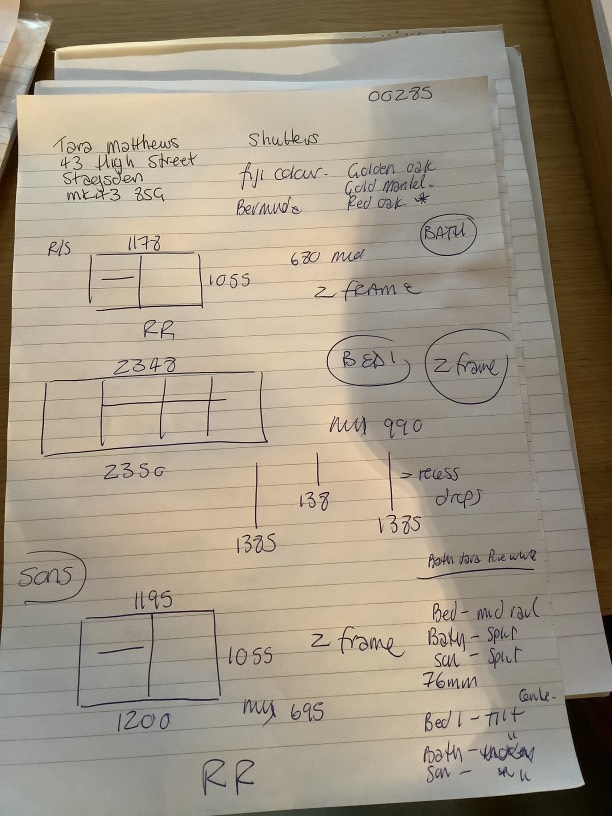 00285
Tara Matthews
43 High Street
Stagsden
mk43 8SG
Shutters
fiji colour. Golden oak
Gold mantel.
Bermuda Red oak *
BATH
R/S
1178
1055
680 mid
Z FRAME
RR
2348
BED 1
Z frame
990
2350
1385
138
1385
= recess
drops
Sons
1195
1055
Z frame
1200
695
RR
Bath
Bed - mid rail
Bath - Split
Son - Split
76mm
Bed 1 - Tilt
Bath -
Son - "